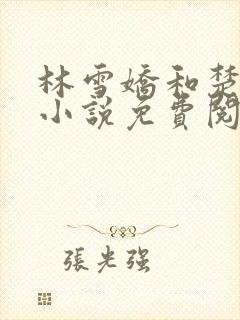 林雪嬌和楚
小說免費閱
張光强